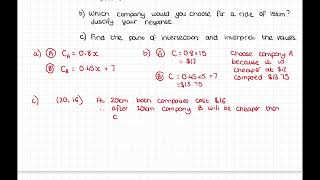 b) Which company would you choose for a ride of 15km?
Justify your response
c) Find the point of intersection and interpret the values
a) A C_A = 0.8x
B C_B = 0.45x + 7
b) A C = 0.8×15
= $12
B C = 0.45×15+7
= $13.75
Choose company A
because it is
cheaper at $12
compared
$13.75
c) (20, 16) At 20km both companies cost $16
∴ after 20km company B will be cheaper than
C